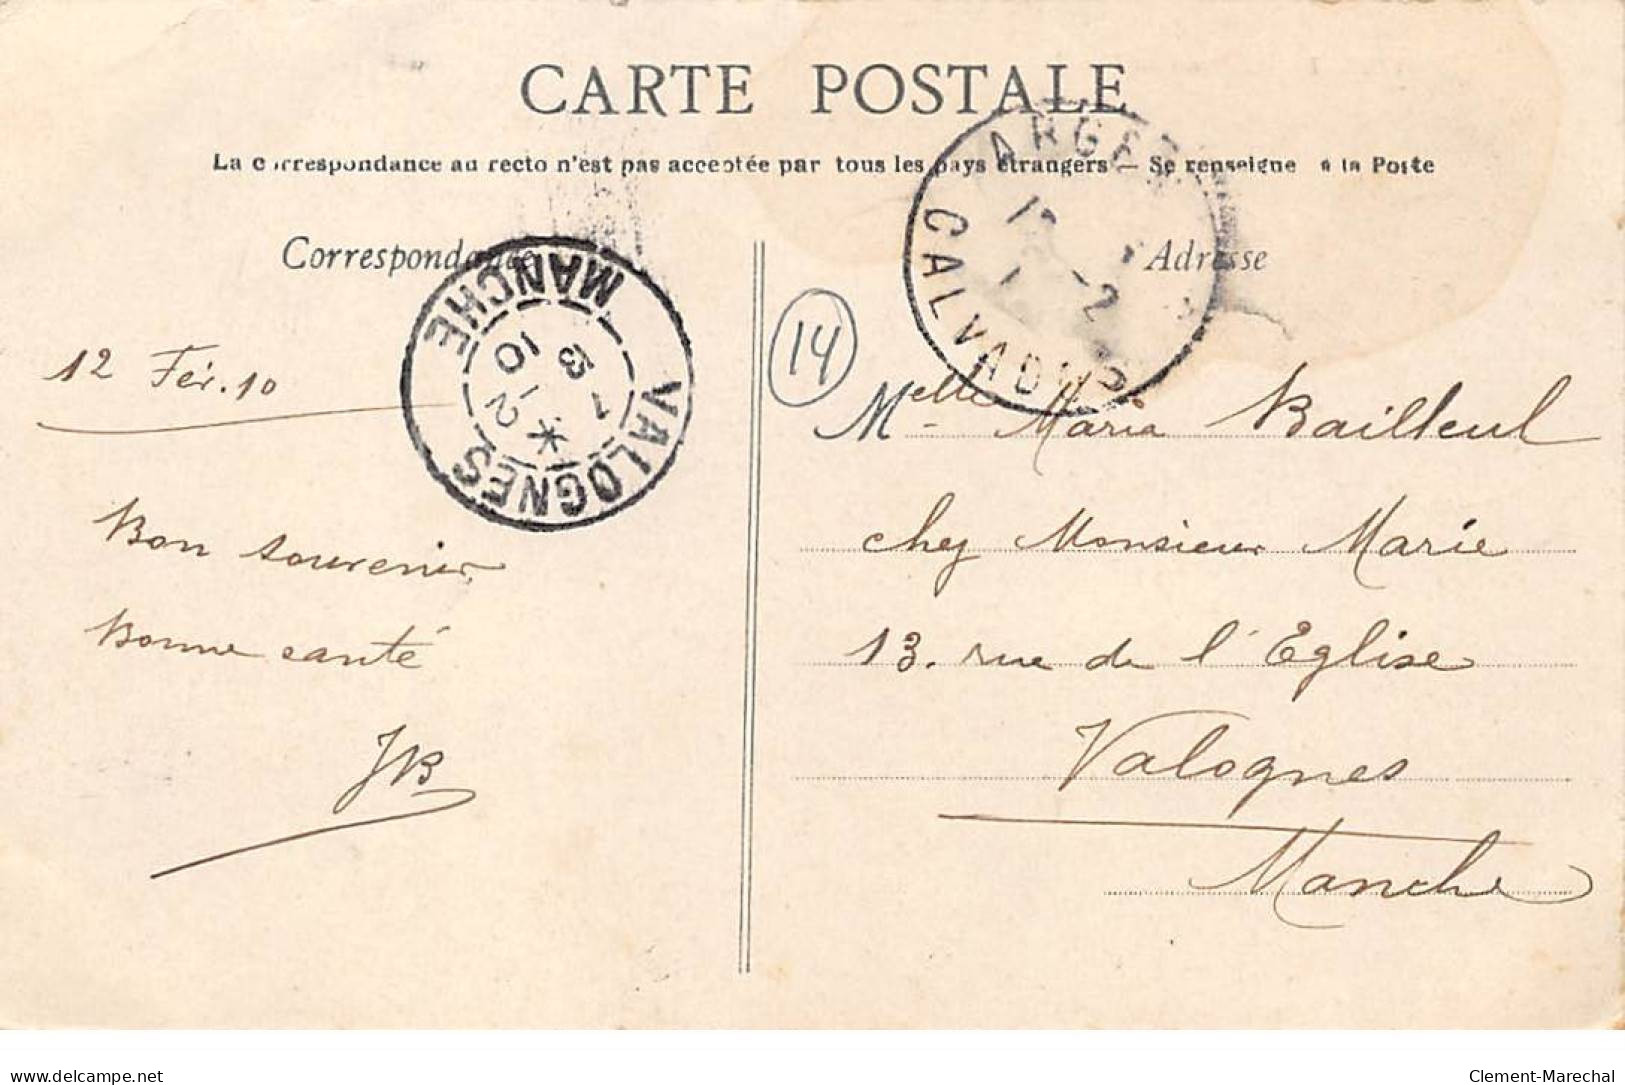 CARTE POSTALE
La correspondance au recto n'est pas acceptée par tous les pays étrangers — Se renseigner à la Poste
Correspondance
Adresse
MANCHE
VALOGNES
13 - 2
10
CALVADOS
14
12 Fév. 10
Bon souvenir
Bonne santé
JB
Melle Maria Bailleul
chez Monsieur Marie
13. rue de l'Eglise
Valognes
Manche
www.delcampe.net
Clement-Marechal